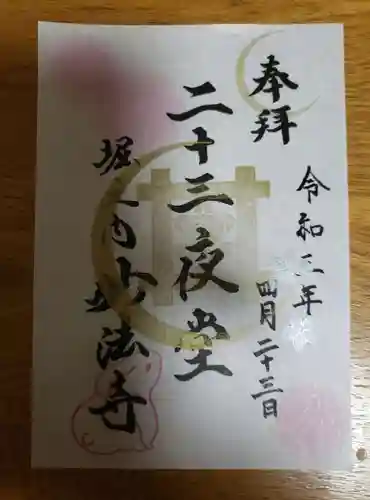 奉拝
令和三年
四月二十三日
二十三夜堂
堀之内妙法寺